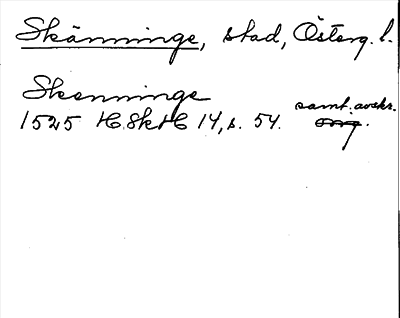 Skänninge, stad, Österg. l.
Skenninge
samt. avskr.
1525 HSkH 14, s. 54. orig.